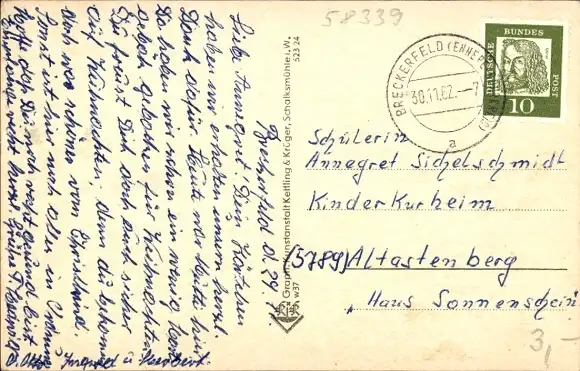 58339
Breckerfeld d. 29.11.
Liebe Annegret. Dein Kärtchen
haben wir erhalten unsern herzl.
Dank dafür. Heute war Mutti hier
Da haben wir schon ein wenig
gebacken für Weihnachten.
Du freust Dich doch auch sicher
auf Weihnachten, denn du bekommst
doch was schönes vom Christkind.
Sonst ist hier noch alles in Ordnung
Hoffe daß Du noch recht gesund bist
herzl. Grüße
O. Otto Ingrid u. Herbert.
Graph. Kunstanstalt Kettling & Krüger, Schalksmühle i. W.
523 24
w37
BRECKERFELD (ENNEPE-
30.11.62.-7
a
DEUTSCHE BUNDES POST
10
Schülerin
Annegret Sichelschmidt
Kinderkurheim
(5789) Altastenberg
„Haus Sonnenschein
3,-